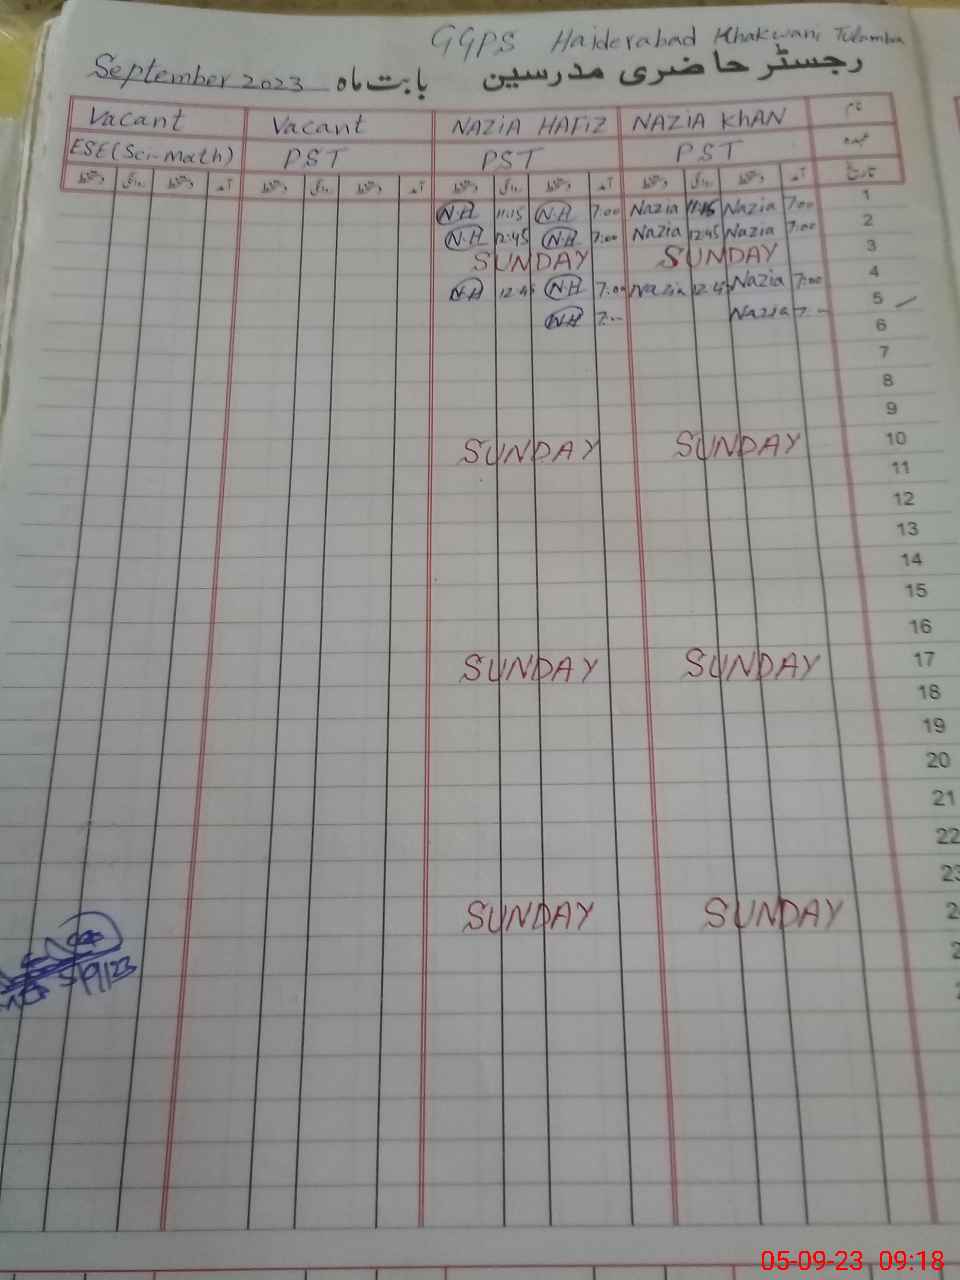 GGPS Haiderabad Khakwani Tulamba
رجسٹر حاضری مدرسین بابت ماہ September 2023
Vacant Vacant NAZIA HAFIZ NAZIA KHAN نام
ESE(Sci-Math) PST PST PST عہدہ
دستخط روانگی دستخط آمد دستخط روانگی دستخط آمد دستخط روانگی دستخط آمد دستخط روانگی دستخط آمد تاریخ
N.H 11:15 N.H 7:00 Nazia 11:15 Nazia 7:00 1
N.H 12:45 N.H 7:00 Nazia 12:45 Nazia 7:00 2
SUNDAY SUNDAY 3
N.H 12:45 N.H 7:00 Nazia 12:45 Nazia 7:00 4
N.H 7:00 Nazia 7:00 5
6
7
8
9
SUNDAY SUNDAY 10
11
12
13
14
15
16
SUNDAY SUNDAY 17
18
19
20
21
22
23
SUNDAY SUNDAY
5/9/23
05-09-23 09:18